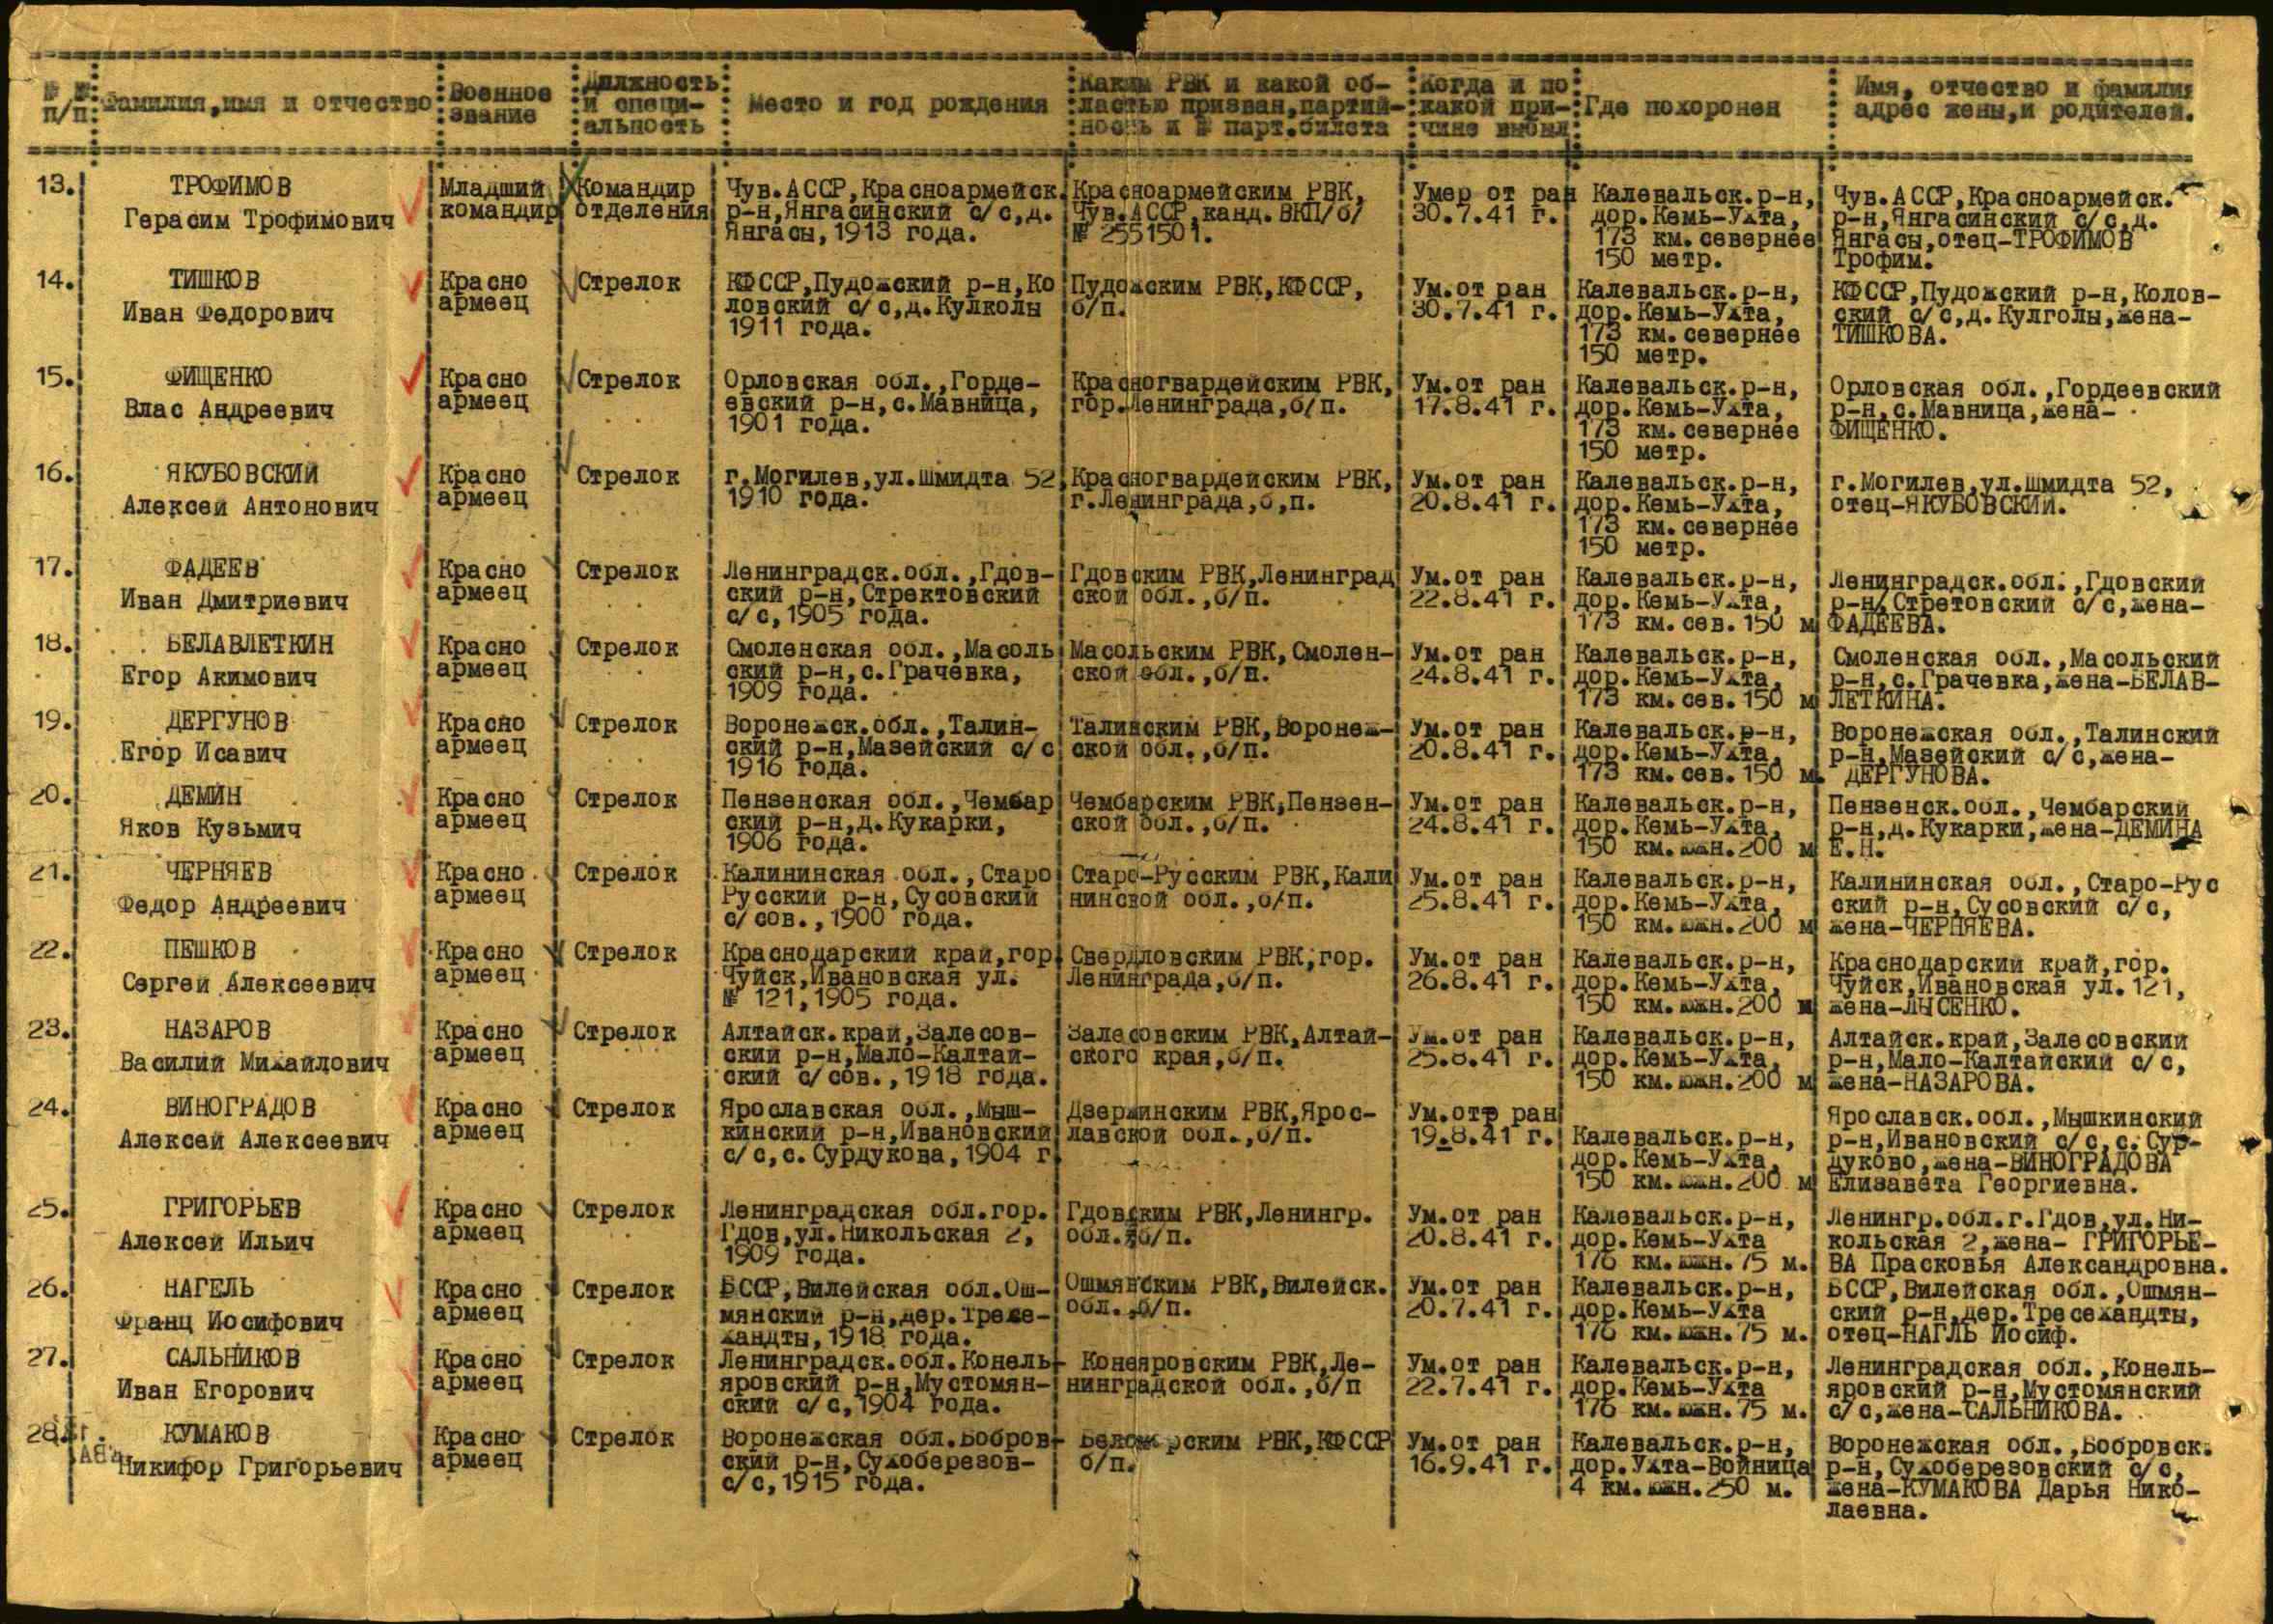 № №
п/п
Фамилия,имя и отчество
Военное
звание
Должность
и специ-
альность
Место и год рождения
Каким РВК и какой об-
ластью призван,партий-
ность и № парт.билета
Когда и по
какой при-
чине выбыл
Где похоронен
Имя, отчество и фамилия
адрес жены,и родителей.
13.
ТРОФИМОВ
Герасим Трофимович
Младший
командир
Командир
отделения
Чув.АССР,Красноармейск.
р-н,Янгасинский с/с,д.
Янгасы,1913 года.
Красноармейским РВК,
Чув.АССР,канд.ВКП/б/
№ 2551501.
Умер от ран
30.7.41 г.
Калевальск.р-н,
дор.Кемь-Ухта,
173 км.севернее
150 метр.
Чув.АССР,Красноармейск.
р-н,Янгасинский с/с,д.
Янгасы,отец-ТРОФИМОВ
Трофим.
14.
ТИШКОВ
Иван Федорович
Красно
армеец
Стрелок
КФССР,Пудожский р-н,Ко
ловский с/с,д.Кулколы
1911 года.
Пудожским РВК,КФССР,
б/п.
Ум.от ран
30.7.41 г.
Калевальск.р-н,
дор.Кемь-Ухта,
173 км.севернее
150 метр.
КФССР,Пудожский р-н,Колов-
ский с/с,д.Кулголы,жена-
ТИШКОВА.
15.
ФИЩЕНКО
Влас Андреевич
Красно
армеец
Стрелок
Орловская обл.,Горде-
евский р-н,с.Мавница,
1901 года.
Красногвардейским РВК,
гор.Ленинграда,б/п.
Ум.от ран
17.8.41 г.
Калевальск.р-н,
дор.Кемь-Ухта,
173 км.севернее
150 метр.
Орловская обл.,Гордеевский
р-н,с.Мавница,жена-
ФИЩЕНКО.
16.
ЯКУБОВСКИЙ
Алексей Антонович
Красно
армеец
Стрелок
г.Могилев,ул.Шмидта 52
1910 года.
Красногвардейским РВК,
г.Ленинграда,б,п.
Ум.от ран
20.8.41 г.
Калевальск.р-н,
дор.Кемь-Ухта,
173 км.севернее
150 метр.
г.Могилев,ул.Шмидта 52,
отец-ЯКУБОВСКИЙ.
17.
ФАДЕЕВ
Иван Дмитриевич
Красно
армеец
Стрелок
Ленинградск.обл.,Гдов-
ский р-н,Стректовский
с/с,1905 года.
Гдовским РВК,Ленинград
ской обл.,б/п.
Ум.от ран
22.8.41 г.
Калевальск.р-н,
дор.Кемь-Ухта,
173 км.сев.150 м
Ленинградск.обл.,Гдовский
р-н,Стретовский с/с,жена-
ФАДЕЕВА.
18.
БЕЛАВЛЕТКИН
Егор Акимович
Красно
армеец
Стрелок
Смоленская обл.,Масоль
ский р-н,с.Грачевка,
1909 года.
Масольским РВК,Смолен-
ской обл.,б/п.
Ум.от ран
24.8.41 г.
Калевальск.р-н,
дор.Кемь-Ухта,
173 км.сев.150 м
Смоленская обл.,Масольский
р-н,с.Грачевка,жена-БЕЛАВ-
ЛЕТКИНА.
19.
ДЕРГУНОВ
Егор Исавич
Красно
армеец
Стрелок
Воронежск.обл.,Талин-
ский р-н,Мазейский с/с
1916 года.
Талинским РВК,Воронеж-
ской обл.,б/п.
Ум.от ран
20.8.41 г.
Калевальск.р-н,
дор.Кемь-Ухта,
173 км.сев.150 м.
Воронежская обл.,Талинский
р-н,Мазейский с/с,жена-
ДЕРГУНОВА.
20.
ДЕМИН
Яков Кузьмич
Красно
армеец
Стрелок
Пензенская обл.,Чембар
ский р-н,д.Кукарки,
1906 года.
Чембарским РВК,Пензен-
ской обл.,б/п.
Ум.от ран
24.8.41 г.
Калевальск.р-н,
дор.Кемь-Ухта,
150 км.южн.200 м
Пензенск.обл.,Чембарский
р-н,д.Кукарки,жена-ДЕМИНА
Е.Н.
21.
ЧЕРНЯЕВ
Федор Андреевич
Красно
армеец
Стрелок
Калининская обл.,Старо
Русский р-н,Сусовский
с/сов.,1900 года.
Старо-Русским РВК,Кали
нинской обл.,б/п.
Ум.от ран
25.8.41 г.
Калевальск.р-н,
дор.Кемь-Ухта,
150 км.южн.200 м
Калининская обл.,Старо-Рус
ский р-н,Сусовский с/с,
жена-ЧЕРНЯЕВА.
22.
ПЕШКОВ
Сергей Алексеевич
Красно
армеец
Стрелок
Краснодарский край,гор
Чуйск,Ивановская ул.
№ 121,1905 года.
Свердловским РВК,гор.
Ленинграда,б/п.
Ум.от ран
26.8.41 г.
Калевальск.р-н,
дор.Кемь-Ухта,
150 км.южн.200 м
Краснодарский край,гор.
Чуйск,Ивановская ул.121,
жена-ЛЫСЕНКО.
23.
НАЗАРОВ
Василий Михайлович
Красно
армеец
Стрелок
Алтайск.край,Залесов-
ский р-н,Мало-Калтай-
ский с/сов.,1918 года.
Залесовским РВК,Алтай-
ского края,б/п.
Ум.от ран
25.8.41 г.
Калевальск.р-н,
дор.Кемь-Ухта,
150 км.южн.200 м
Алтайск.край,Залесовский
р-н,Мало-Калтайский с/с,
жена-НАЗАРОВА.
24.
ВИНОГРАДОВ
Алексей Алексеевич
Красно
армеец
Стрелок
Ярославская обл.,Мыш-
кинский р-н,Ивановский
с/с,с.Сурдукова,1904 г
Дзержинским РВК,Ярос-
лавской обл.,б/п.
Ум.отр ран
19.8.41 г.
Калевальск.р-н,
дор.Кемь-Ухта,
150 км.южн.200 м
Ярославск.обл.,Мышкинский
р-н,Ивановский с/с,с.Сур-
дуково,жена-ВИНОГРАДОВА
Елизавета Георгиевна.
25.
ГРИГОРЬЕВ
Алексей Ильич
Красно
армеец
Стрелок
Ленинградская обл.гор.
Гдов,ул.Никольская 2,
1909 года.
Гдовским РВК,Ленингр.
обл.б/п.
Ум.от ран
20.8.41 г.
Калевальск.р-н,
дор.Кемь-Ухта
176 км.южн.75 м.
Ленингр.обл.г.Гдов,ул.Ни-
кольская 2,жена- ГРИГОРЬЕ-
ВА Прасковья Александровна.
26.
НАГЕЛЬ
Франц Иосифович
Красно
армеец
Стрелок
БССР,Вилейская обл.Ош-
мянский р-н,дер.Тресе-
хандты,1918 года.
Ошмянским РВК,Вилейск.
обл.,б/п.
Ум.от ран
20.7.41 г.
Калевальск.р-н,
дор.Кемь-Ухта
176 км.южн.75 м.
БССР,Вилейская обл.,Ошмян-
ский р-н,дер.Тресехандты,
отец-НАГЛЬ Иосиф.
27.
САЛЬНИКОВ
Иван Егорович
Красно
армеец
Стрелок
Ленинградск.обл.Конель-
яровский р-н,Мустомян-
ский с/с,1904 года.
Конеяровским РВК,Ле-
нинградской обл.,б/п
Ум.от ран
22.7.41 г.
Калевальск.р-н,
дор.Кемь-Ухта
176 км.южн.75 м.
Ленинградская обл.,Конель-
яровский р-н,Мустомянский
с/с,жена-САЛЬНИКОВА.
28
КУМАКОВ
Никифор Григорьевич
Красно
армеец
Стрелок
Воронежская обл.Бобров-
ский р-н,Сухоберезов-
с/с,1915 года.
РВК,КФССР
б/п.
Ум.от ран
16.9.41 г.
Калевальск.р-н,
дор.Ухта-Войница
4 км.южн.250 м.
Воронежская обл.,Бобровск.
р-н,Сухоберезовский с/с,
жена-КУМАКОВА Дарья Нико-
лаевна.